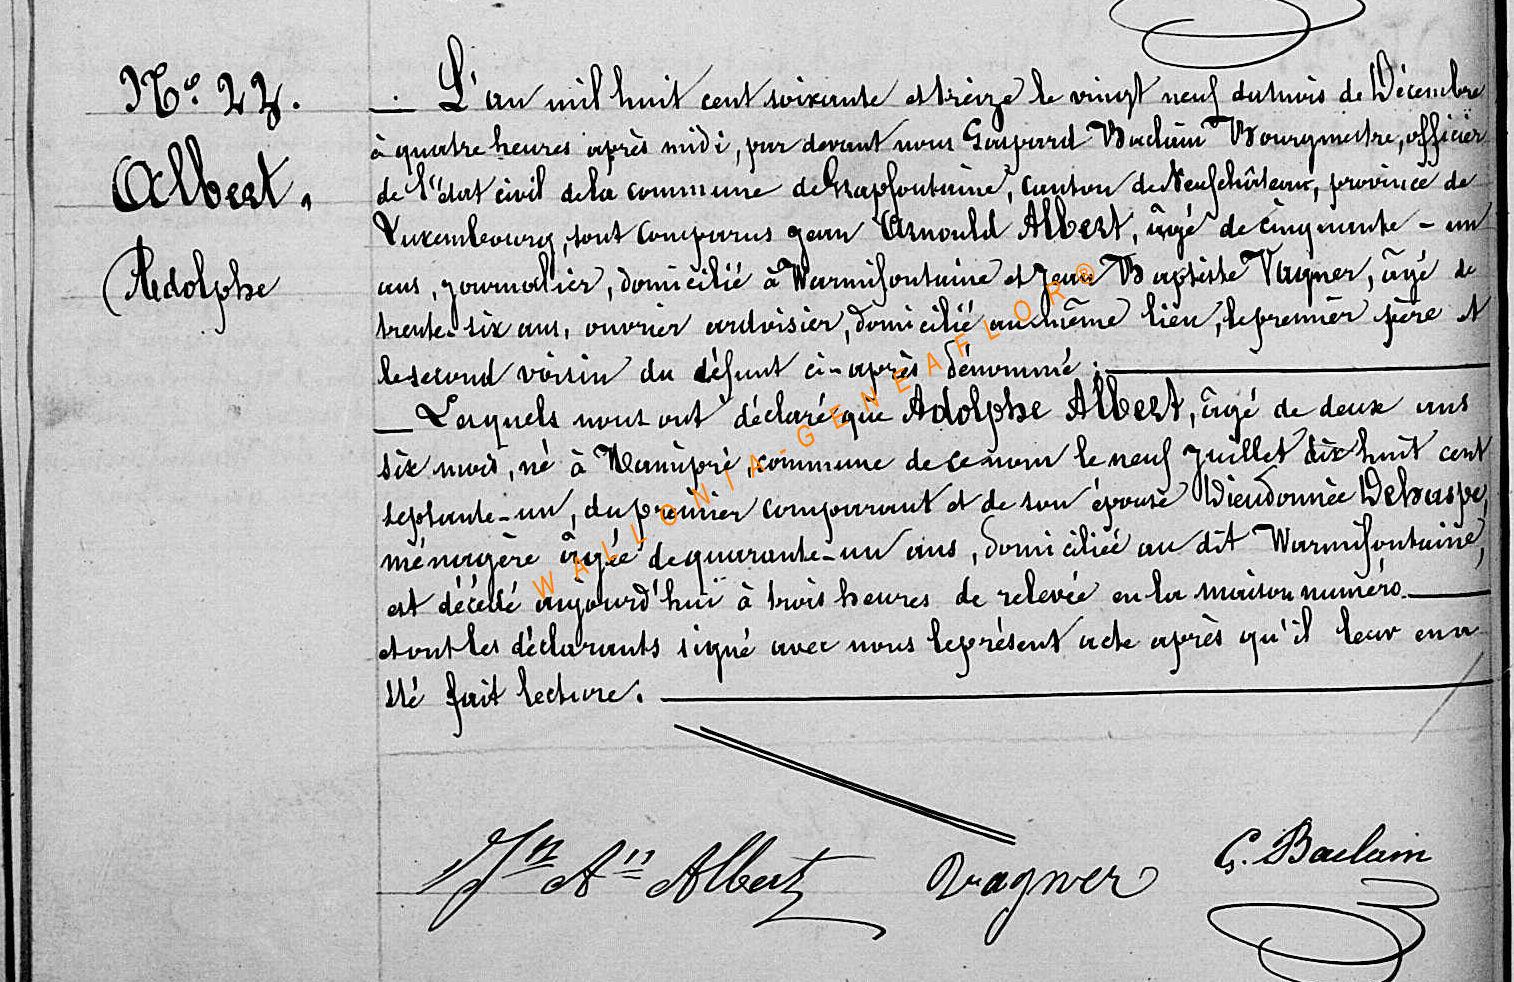 N.° 22.
Albert,
Adolphe
L'an mil huit cent soixante et treize le vingt neuf du mois de Décembre
à quatre heures après midi, par devant nous Gaspard Baclain Bourgmestre, officier
de l'état civil de la commune de Grapfontaine, canton de Neufchâteau, province de
Luxembourg, sont comparus Jean Arnould Albert, âgé de cinquante-un
ans, journalier, domicilié à Warmifontaine et Jean Baptiste Vagner, âgé de
trente-six ans, ouvrier ardoisier, domicilié au même lieu, le premier père et
le second voisin du défunt ci-après dénommé;
Lesquels nous ont déclaré que Adolphe Albert, âgé de deux ans
six mois, né à Namipré, commune de ce nom le neuf Juillet dix huit cent
septante-un, du premier comparant et de son épouse Dieudonnée Dehaspe,
ménagère âgée de quarante-un ans, domiciliée au dit Warmifontaine,
est décédé aujourd'hui à trois heures de relevée en la maison numéro
et ont les déclarants signé avec nous le présent acte après qu'il leur en a
été fait lecture.
Jn An Albert Vagner G. Baclain
WALLONIA-GENEAFLOR®